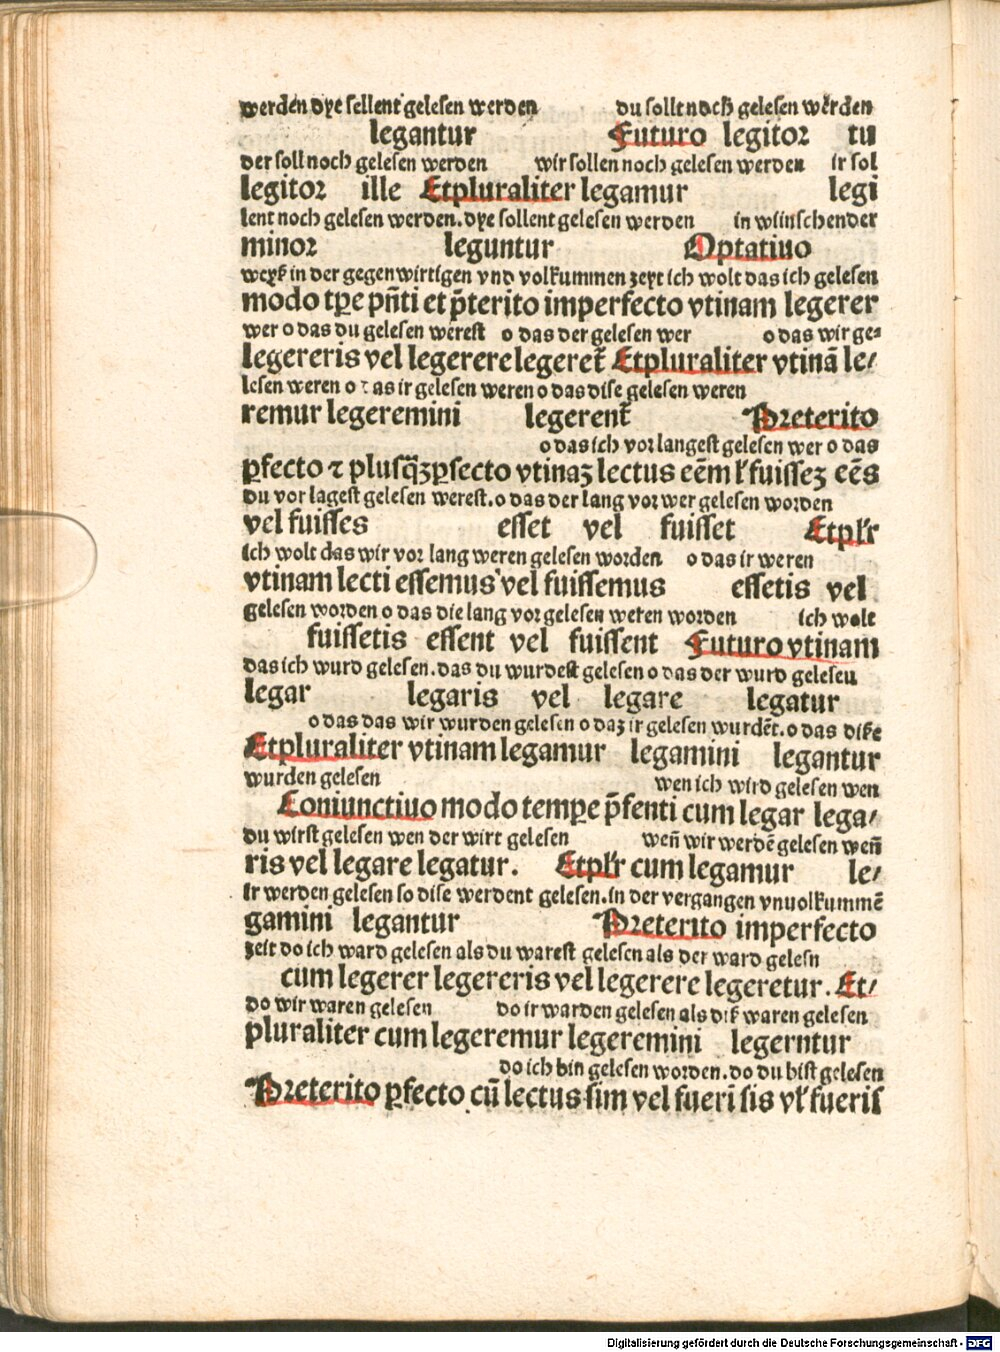 werden dye sellent gelesen werden du sollt noch gelesen werden
legantur Futuro legitor tu
der soll noch gelesen werden wir sollen noch gelesen werden ir sol
legitor ille Etpluraliter legamur legi
lent noch gelesen werden. dye sollent gelesen werden in wünschender
minor leguntur Optatiuo
weyß in der gegenwirtigen vnd volkummen zeyt ich wolt das ich gelesen
modo tpe pñti et p̃terito imperfecto vtinam legerer
wer o das du gelesen werest o das der gelesen wer o das wir ge⸗
legereris vel legerere legeret̃ Etpluraliter vtinã le/
lesen weren o das ir gelesen weren o das dise gelesen weren
remur legeremini legerent̃ Preterito
o das ich vor langest gelesen wer o das
ꝑfecto ⁊ plusq̃ꝫꝑfecto vtinaꝫ lectus eẽm ł fuisseꝫ eẽs
du vor lagest gelesen werest. o das der lang vor wer gelesen worden
vel fuisses esset vel fuisset Etpłr
ich wolt das wir vor lang weren gelesen worden o das ir weren
vtinam lecti essemus vel fuissemus essetis vel
gelesen worden o das die lang vor gelesen weren worden ich wolt
fuissetis essent vel fuissent Futuro vtinam
das ich wurd gelesen. das du wurdest gelesen o das der wurd gelesen
legar legaris vel legare legatur
o das das wir wurden gelesen o daz ir gelesen wurdẽt. o das diße
Etpluraliter vtinam legamur legamini legantur
wurden gelesen wen ich wird gelesen wen
Coniunctiuo modo tempe p̃senti cum legar lega/
du wirst gelesen wen der wirt gelesen weñ wir werdẽ gelesen weñ
ris vel legare legatur. Etpłr cum legamur le/
ir werden gelesen so dise werdent gelesen. in der vergangen vnuolkummẽ
gamini legantur Preterito imperfecto
zeit do ich ward gelesen als du warest gelesen als der ward gelesn
cum legerer legereris vel legerere legeretur. Et/
do wir waren gelesen do ir warden gelesen als diß waren gelesen
pluraliter cum legeremur legeremini legerntur
do ich bin gelesen worden. do du bist gelesen
Preterito ꝑfecto cũ lectus sim vel fueri sis vł fueris
Digitalisierung gefördert durch die Deutsche Forschungsgemeinschaft - DFG